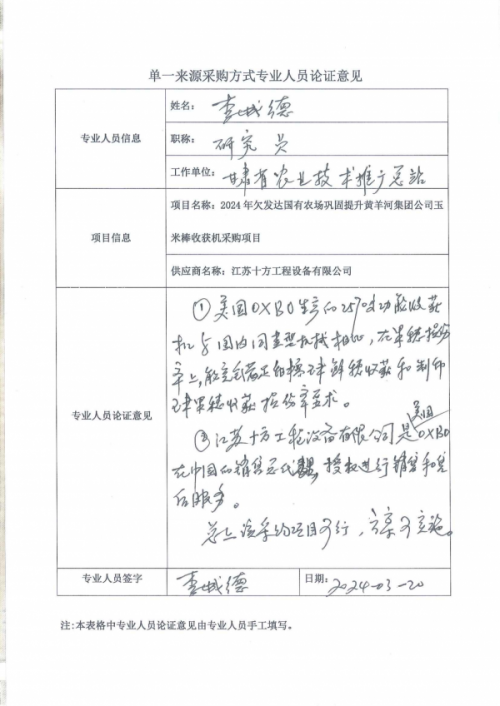 单一来源采购方式专业人员论证意见
专业人员信息
姓名：李城德
职称：研究员
工作单位：甘肃省农业技术推广总站
项目信息
项目名称：2024年欠发达国有农场巩固提升黄羊河集团公司玉
米棒收获机采购项目
供应商名称：江苏十方工程设备有限公司
专业人员论证意见
①美国OXBO生产的2570 收获
机与国内同类型机械相比，在果穗损伤
率上，能完全满足 鲜穗收获和制种
果穗收获损伤率要求。
②江苏十方工程设备有限公司是美国OXBO
在中国的销售总代理，授权进行销售和售
后服务。
总上该采购项目可行，方案可实施。
专业人员签字
李城德
日期：2024-03-20
注：本表格中专业人员论证意见由专业人员手工填写。